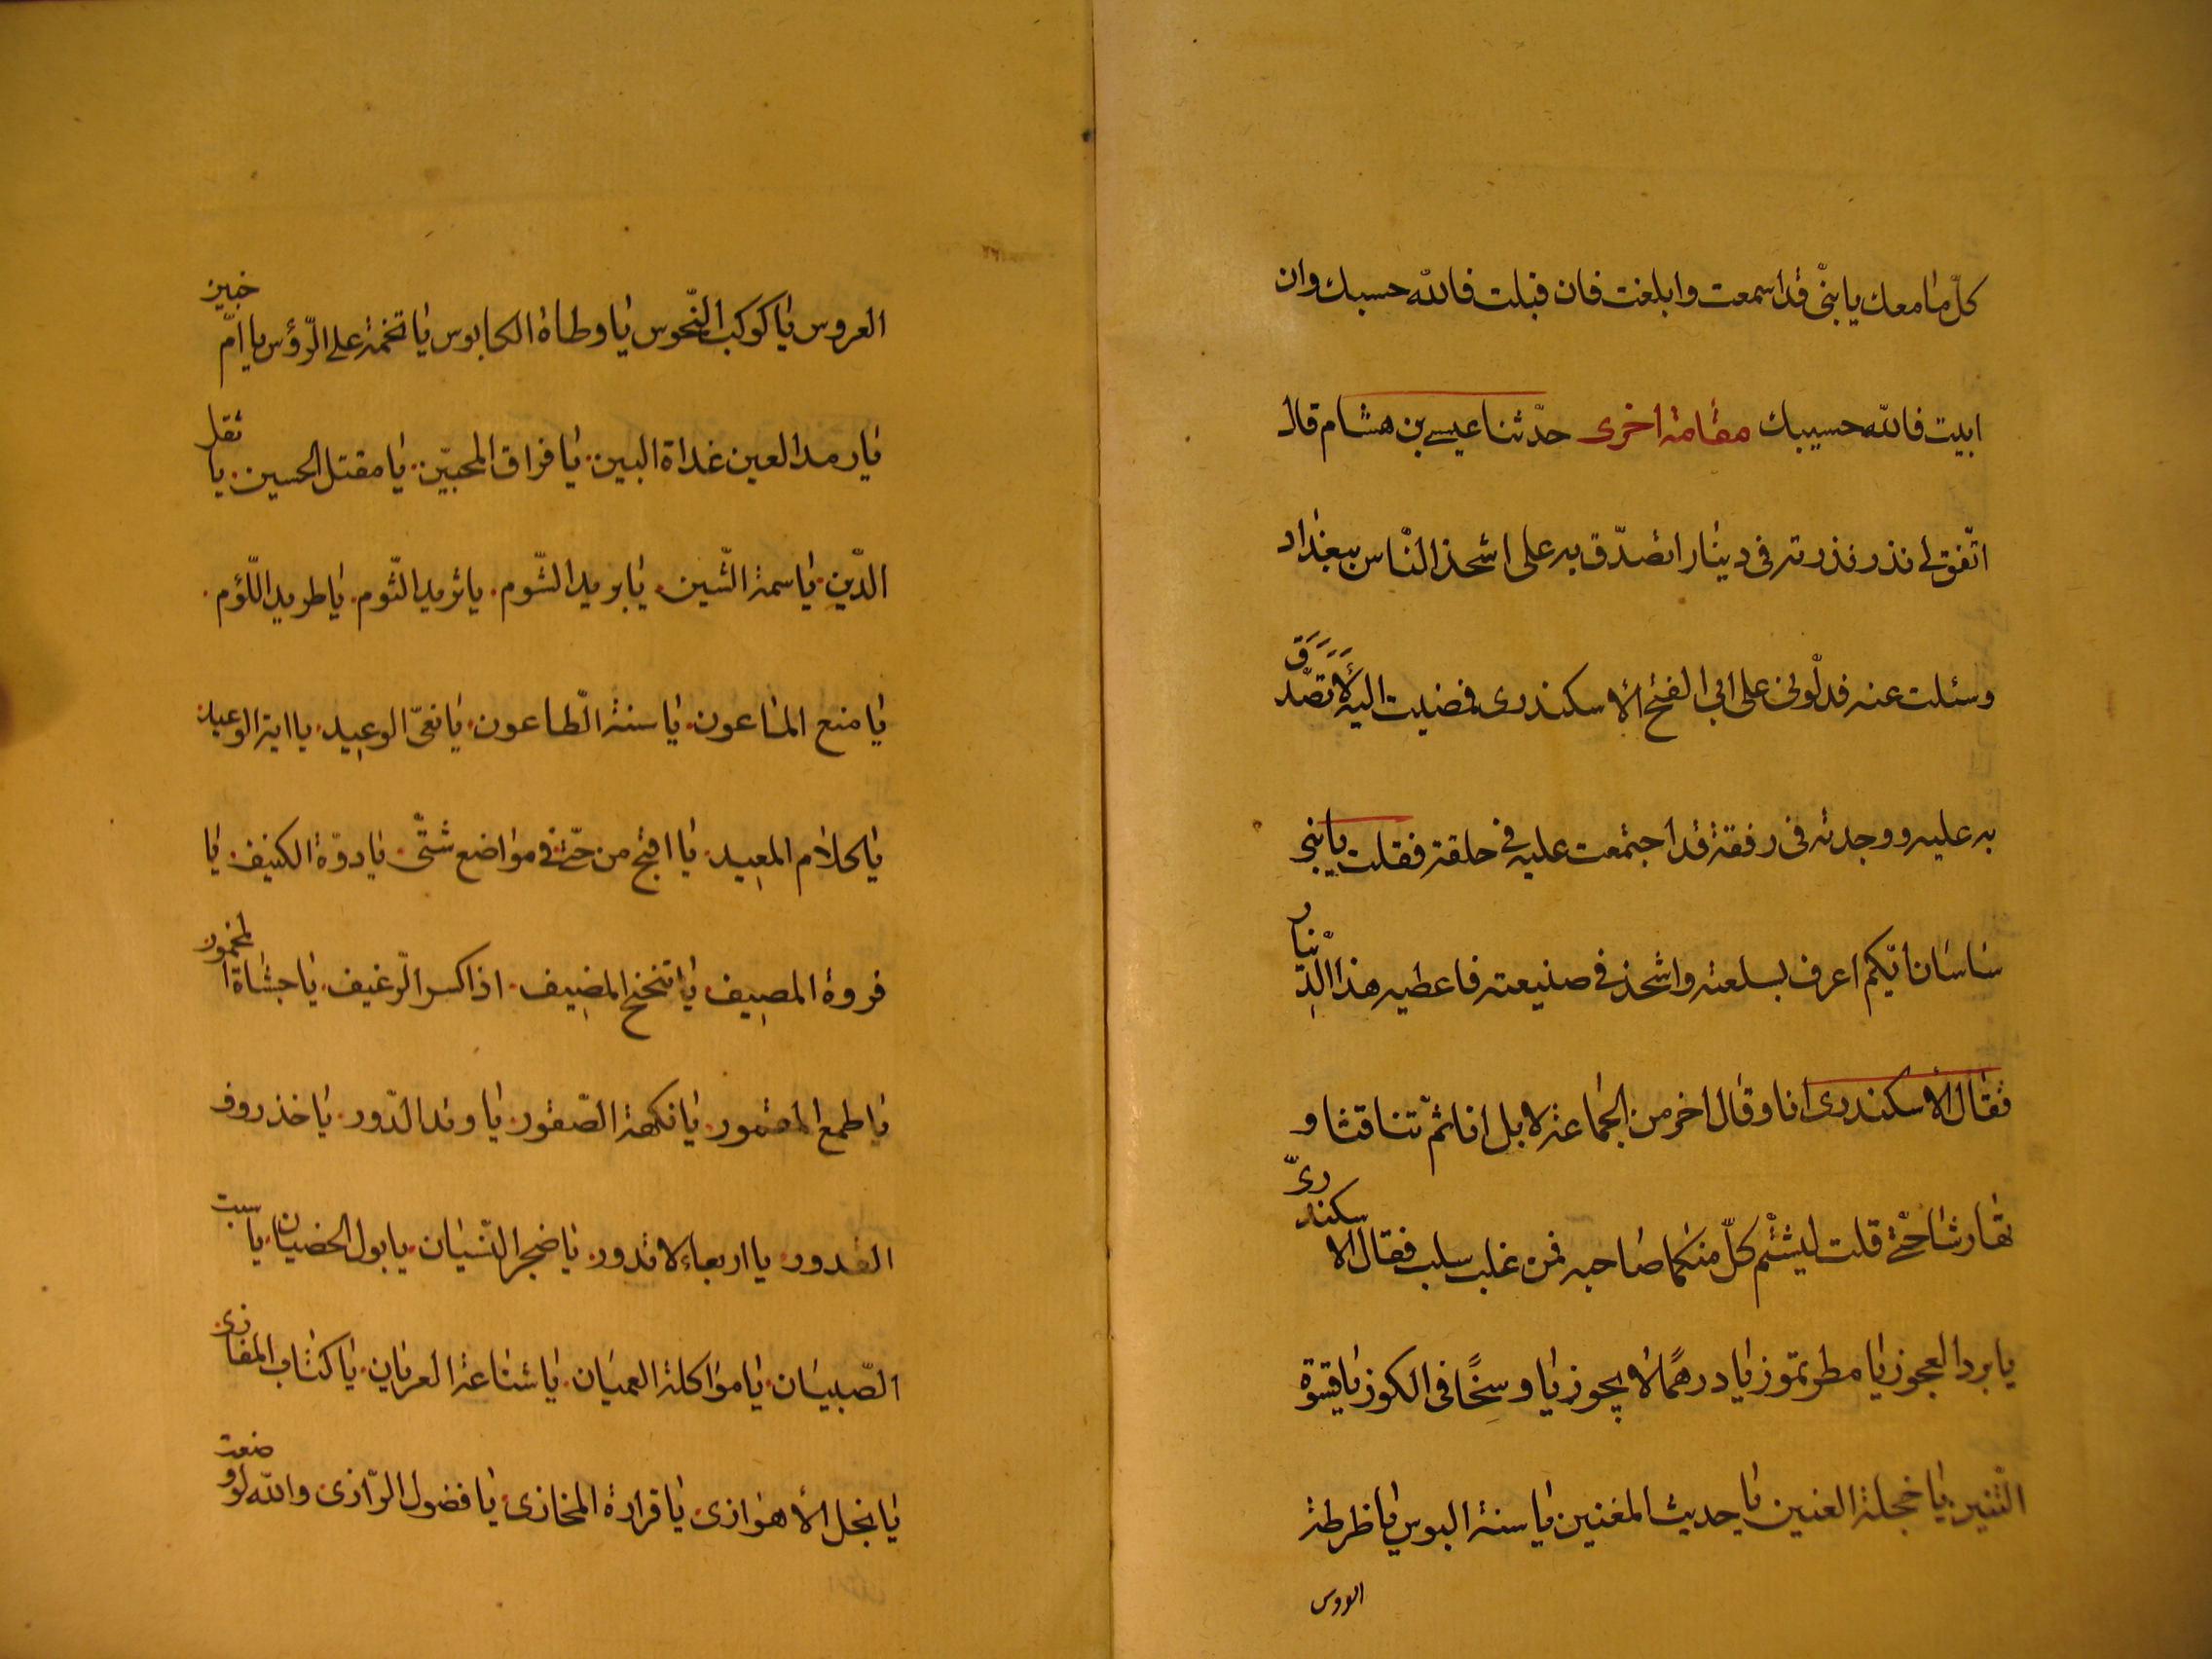 كلّ ما معك يا بنىّ قد اسمعت وابلغت فان قبلت فالله حسبك وان
ابيت فالله حسيبك مقامة اخرى حدّثنا عيسى بن هشام قال
اتّفق لى نذر نذرته فى دينار اتصدّق به على اشحذ الناس ببغداد
وسئلت عنه فدلّونى على ابى الفتح الاسكندرى فمضيت اليه لاتصدّق
به عليه ووجدته فى رفقة قد اجتمعت عليه فى حلقة فقلت يا بنى
ساسان ايّكم اعرف بسلعته واشحذ فى صنيعته فاعطيه هذا الدّينار
فقال الاسكندرى انا وقال اخر من الجماعة لا بل انا ثمّ تناقشا و
تهارشا حتّى قلت ليشتم كلّ منكما صاحبه فمن غلب سلب فقال الاسكندرىّ
يا برد العجوز يا مطر تموز يا درهمًا لا يجوز يا وسخًا فى الكوز يا قسوة
التنين يا خجلة العنين يا حديث المغنين يا سنة البوس يا ظرطة
العروس
العروس يا كوكب النّحوس يا وطاة الكابوس يا تخمة على الرّؤس يا امّ خبين
يا رمد العين غداة البين. يا فراق المحبّين. يا مقتل الحسين. يا ثقل
الدّين. يا سمة الشّين. يا بريد الشّوم. يا ثريد الثّوم. يا طريد اللّؤم.
يا منع الماعون. يا سنة الطّاعون. يا نعىّ الوعيد. يا اية الوعيد
يا كلام المعيد. يا اقبح من حتّى فى مواضع شتّى. يا دوّة الكنيف. يا
فروة المصيف. يا تنخنح المضيف. اذا كسر الرّغيف. يا جشاة المخمور
يا طمع المقمور. يا نكهة الصّقور. يا وتد الدّور. يا خذروف
القدور. يا اربعاء لا تدور. يا ضجر النّسيان. يا بول الخصيان. يا سبت
الصّبيان. يا مواكلة العميان. يا شناعة العريان. يا كتاب المغازى.
يا بخل الاهوازى. يا قرادة المخازى. يا فضول الرّازى. والله لو وضعت